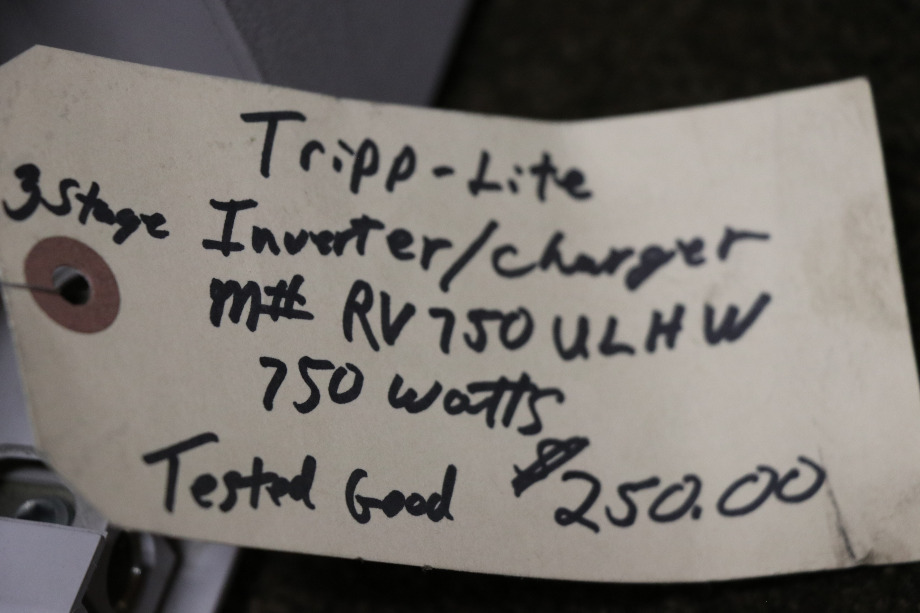 Tripp-Lite
3 Stage Inverter/charger
M# RV750ULHW
750 watts
Tested Good $250.00